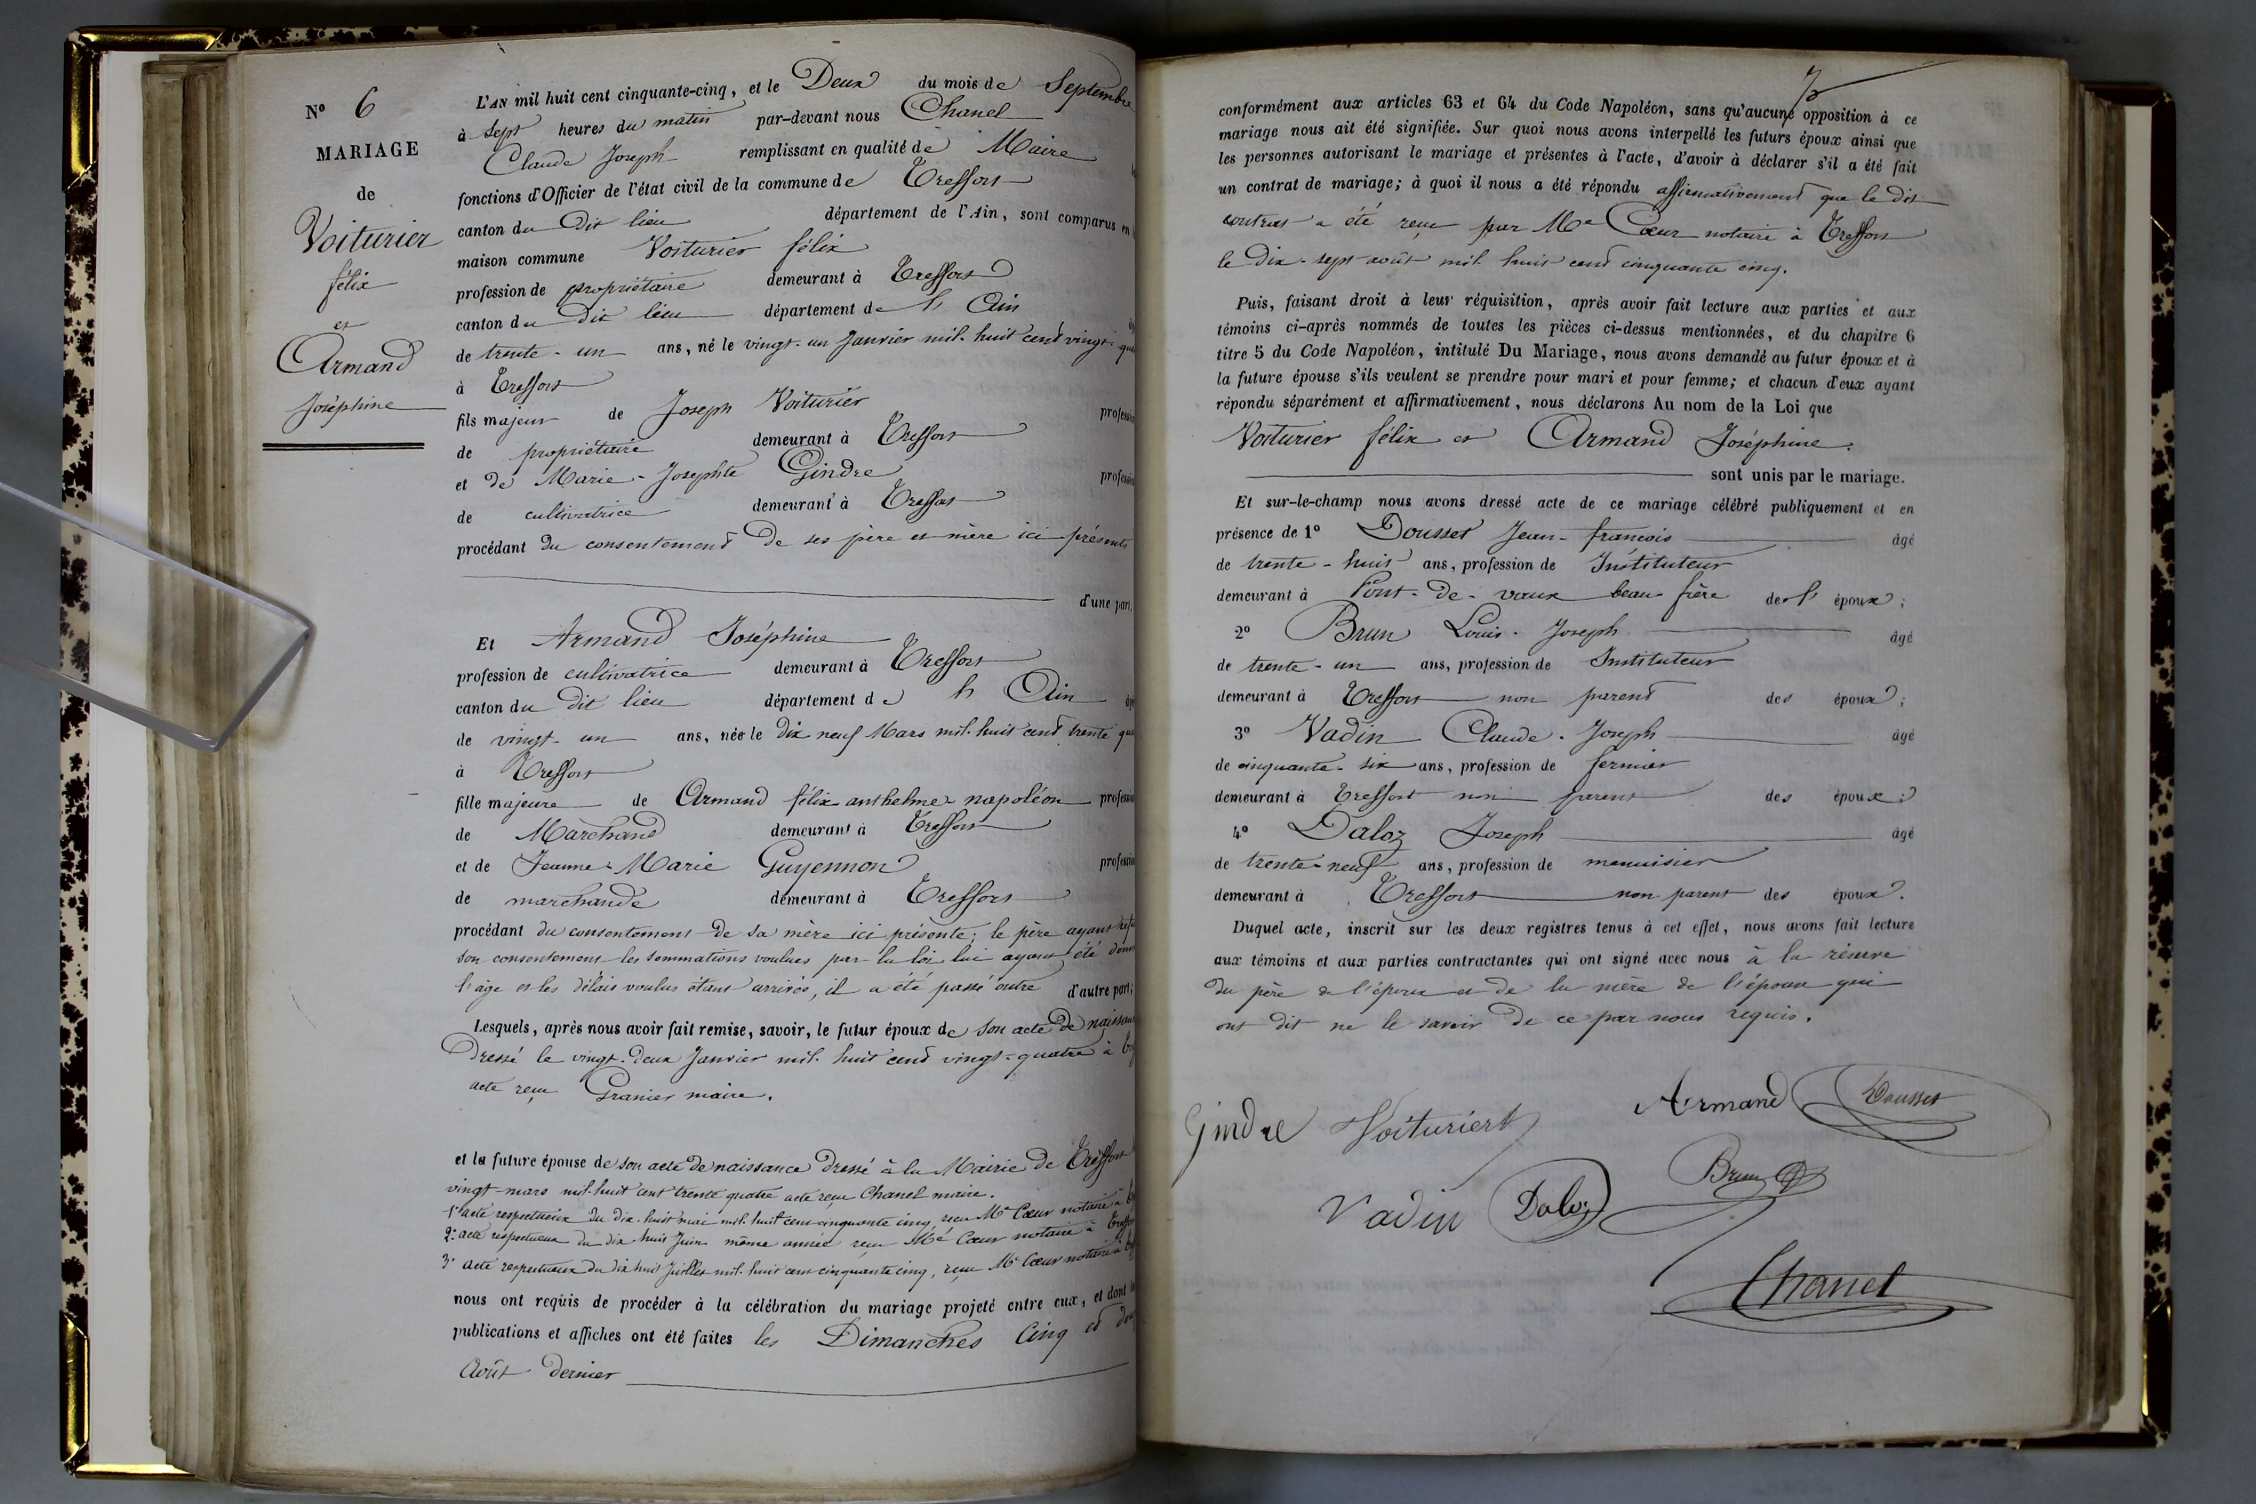 N° 6
MARIAGE
de
Voiturier
félix
et
Armand
Joséphine
L'AN mil huit cent cinquante-cinq, et le Deux du mois de Septembre
à sept heures du matin par-devant nous Chanel
Claude Joseph remplissant en qualité de Maire
fonctions d'Officier de l'état civil de la commune de Treffort
canton du dit lieu département de l'Ain, sont comparus en
maison commune Voiturier félix
profession de propriétaire demeurant à Treffort
canton du dit lieu département de l' Ain
de trente-un ans, né le vingt-un Janvier mil-huit cent vingt
à Treffort
fils majeur de Joseph Voiturier
de propriétaire demeurant à Treffort
et de Marie-Josephte Gindre
de cultivatrice demeurant à Treffort
procédant du consentement de ses père et mère ici présents
d'une part,
Et Armand Joséphine
profession de cultivatrice demeurant à Treffort
canton du dit lieu département de l' Ain
de vingt-un ans, née le dix neuf Mars mil-huit cent trente
à Treffort
fille majeure de Armand félix anthelme napoléon
de Marchand demeurant à Treffort
et de Jeanne-Marie Guyennon
de marchande demeurant à Treffort
procédant du consentement de sa mère ici présente; le père ayant
son consentement les sommations voulues par la loi lui ayant été
l'âge et les délais voulus étant arrivés, il a été passé outre d'autre part;
Lesquels, après nous avoir fait remise, savoir, le futur époux de son acte de
dressé le vingt-deux Janvier mil-huit cent vingt-quatre à
acte reçu Granier maire.
et la future épouse de son acte de naissance dressé à la Mairie de Treffort
vingt mars mil-huit cent trente quatre acte reçu Chanel maire.
1° acte respectueux du dix-huit mai mil-huit cent cinquante cinq, reçu Me Cœur notaire à
2° acte respectueux du dix huit Juin même année reçu Me Cœur notaire à
3° acte respectueux du dix huit Juillet mil-huit cent cinquante cinq, reçu Me Cœur notaire à
nous ont requis de procéder à la célébration du mariage projeté entre eux, et dont
publications et affiches ont été faites les Dimanches Cinq et
Août dernier
7
conformément aux articles 63 et 64 du Code Napoléon, sans qu'aucune opposition à ce
mariage nous ait été signifiée. Sur quoi nous avons interpellé les futurs époux ainsi que
les personnes autorisant le mariage et présentes à l'acte, d'avoir à déclarer s'il a été fait
un contrat de mariage; à quoi il nous a été répondu affirmativement que le dit
contrat a été reçu par Me Cœur notaire à Treffort
le dix-sept août mil-huit cent cinquante cinq.
Puis, faisant droit à leur réquisition, après avoir fait lecture aux parties et aux
témoins ci-après nommés de toutes les pièces ci-dessus mentionnées, et du chapitre 6
titre 5 du Code Napoléon, intitulé Du Mariage, nous avons demandé au futur époux et à
la future épouse s'ils veulent se prendre pour mari et pour femme; et chacun d'eux ayant
répondu séparément et affirmativement, nous déclarons Au nom de la Loi que
Voiturier félix et Armand Joséphine.
sont unis par le mariage.
Et sur-le-champ nous avons dressé acte de ce mariage célébré publiquement et en
présence de 1° Dousset Jean-francois âgé
de trente-huit ans, profession de Instituteur
demeurant à Pont-de-vaux beau frère de l' époux;
2° Brun Louis-Joseph âgé
de trente-un ans, profession de Instituteur
demeurant à Treffort non parent des époux;
3° Vadin Claude-Joseph âgé
de cinquante-six ans, profession de fermier
demeurant à Treffort non parent des époux;
4° Daloz Joseph âgé
de trente-neuf ans, profession de menuisier
demeurant à Treffort non parent des époux.
Duquel acte, inscrit sur les deux registres tenus à cet effet, nous avons fait lecture
aux témoins et aux parties contractantes qui ont signé avec nous à la réserve
du père de l'époux et de la mère de l'époux qui
ont dit ne le savoir de ce par nous requis.
Armand Dousset
Gindre Voiturier
Brun
Vadin Daloz
Chanel